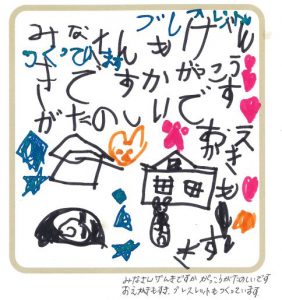 みなさん げん
きですか がこう
がたのしいです
おえかきも
すき
も
つくってます
みなさんげんきですか がっこうがたのしいです
おえかきもすき ブレスレットもつくっています